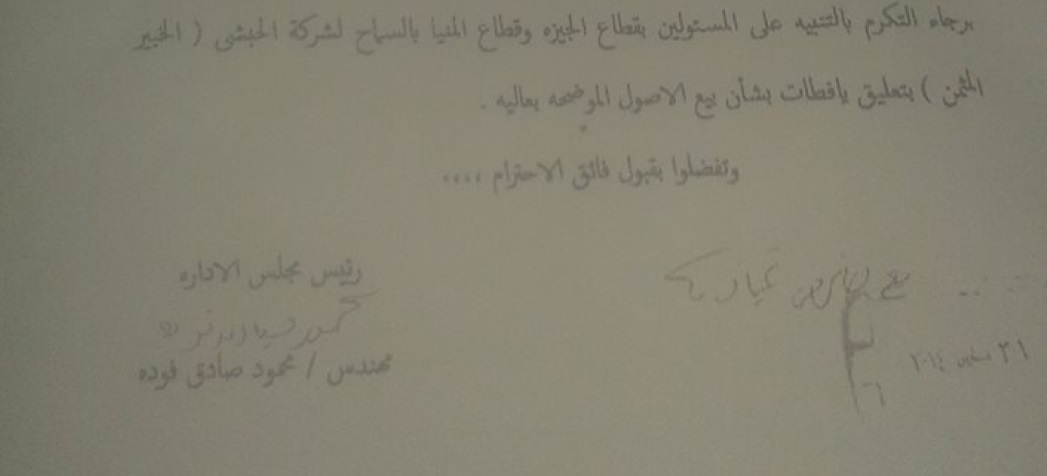 برجاء التكرم بالتنبيه على المسئولين بقطاع الجيزه وقطاع المنيا بالسماح لشركة الحبشى ( الخبير
المثمن ) بتعليق يافطات بشأن بيع الاصول الموضحه بعاليه .
وتفضلوا بقبول فائق الاحترام ،،،،
رئيس مجلس الاداره
مهندس / محمود صادق فوده